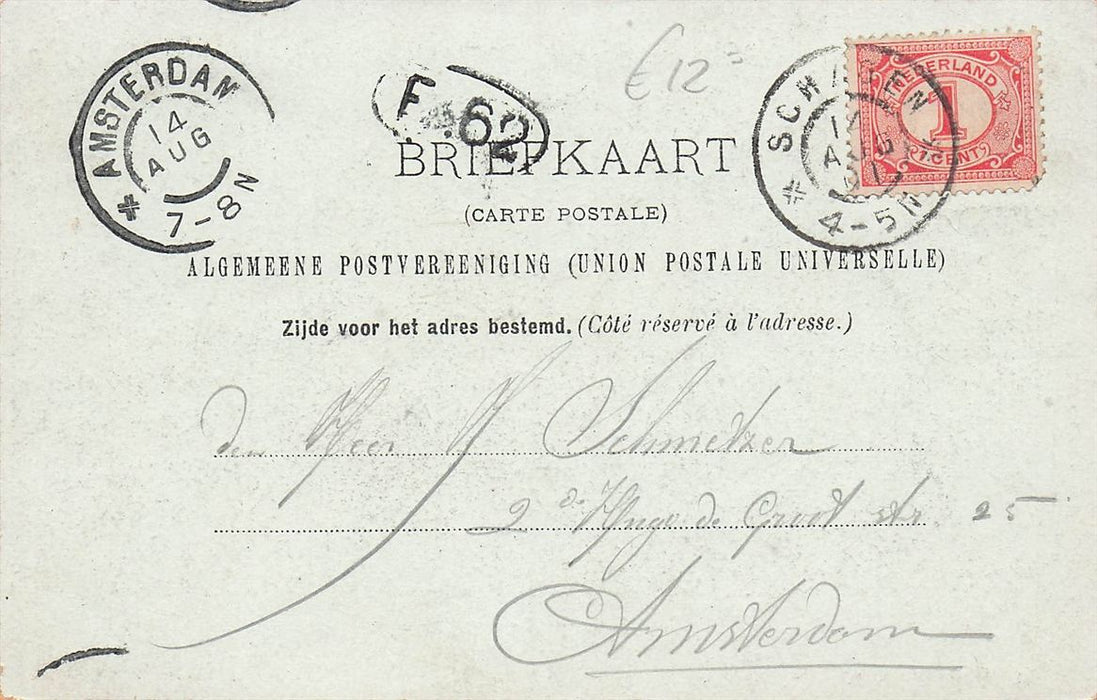 AMSTERDAM
14
AUG
7-8N
F.62
€12=
SCHAGEN
AUG
4-5N
NEDERLAND
1
1 CENT
BRIEFKAART
(CARTE POSTALE)
ALGEMEENE POSTVEREENIGING (UNION POSTALE UNIVERSELLE)
Zijde voor het adres bestemd. (Côté réservé à l'adresse.)
den Heer J Schmetzer
2de Hugo de Groot str 25
Amsterdam